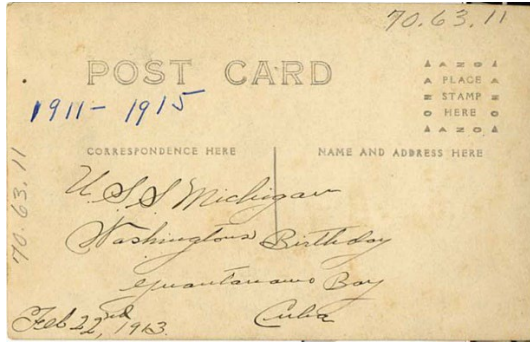 70.63.11
POST CARD
▲ AZO ▲
PLACE
STAMP
HERE
▲ AZO ▲
1911-1915
CORRESPONDENCE HERE
NAME AND ADDRESS HERE
70.63.11
U.S.S Michigan
Washingtons Birthday
Guantanamo Bay
Cuba
Feb 22nd, 1913.